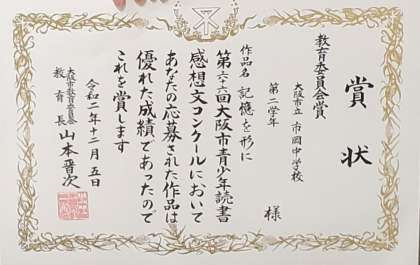 賞状
教育委員会賞
大阪市立 市岡中学校
第二学年 様
作品名 記憶を形に
第六六回大阪市青少年読書
感想文コンクールにおいて
あなたの応募された作品は
優れた成績であったので
これを賞します
令和二年十二月五日
大阪市教育委員会
教育長 山本晋次